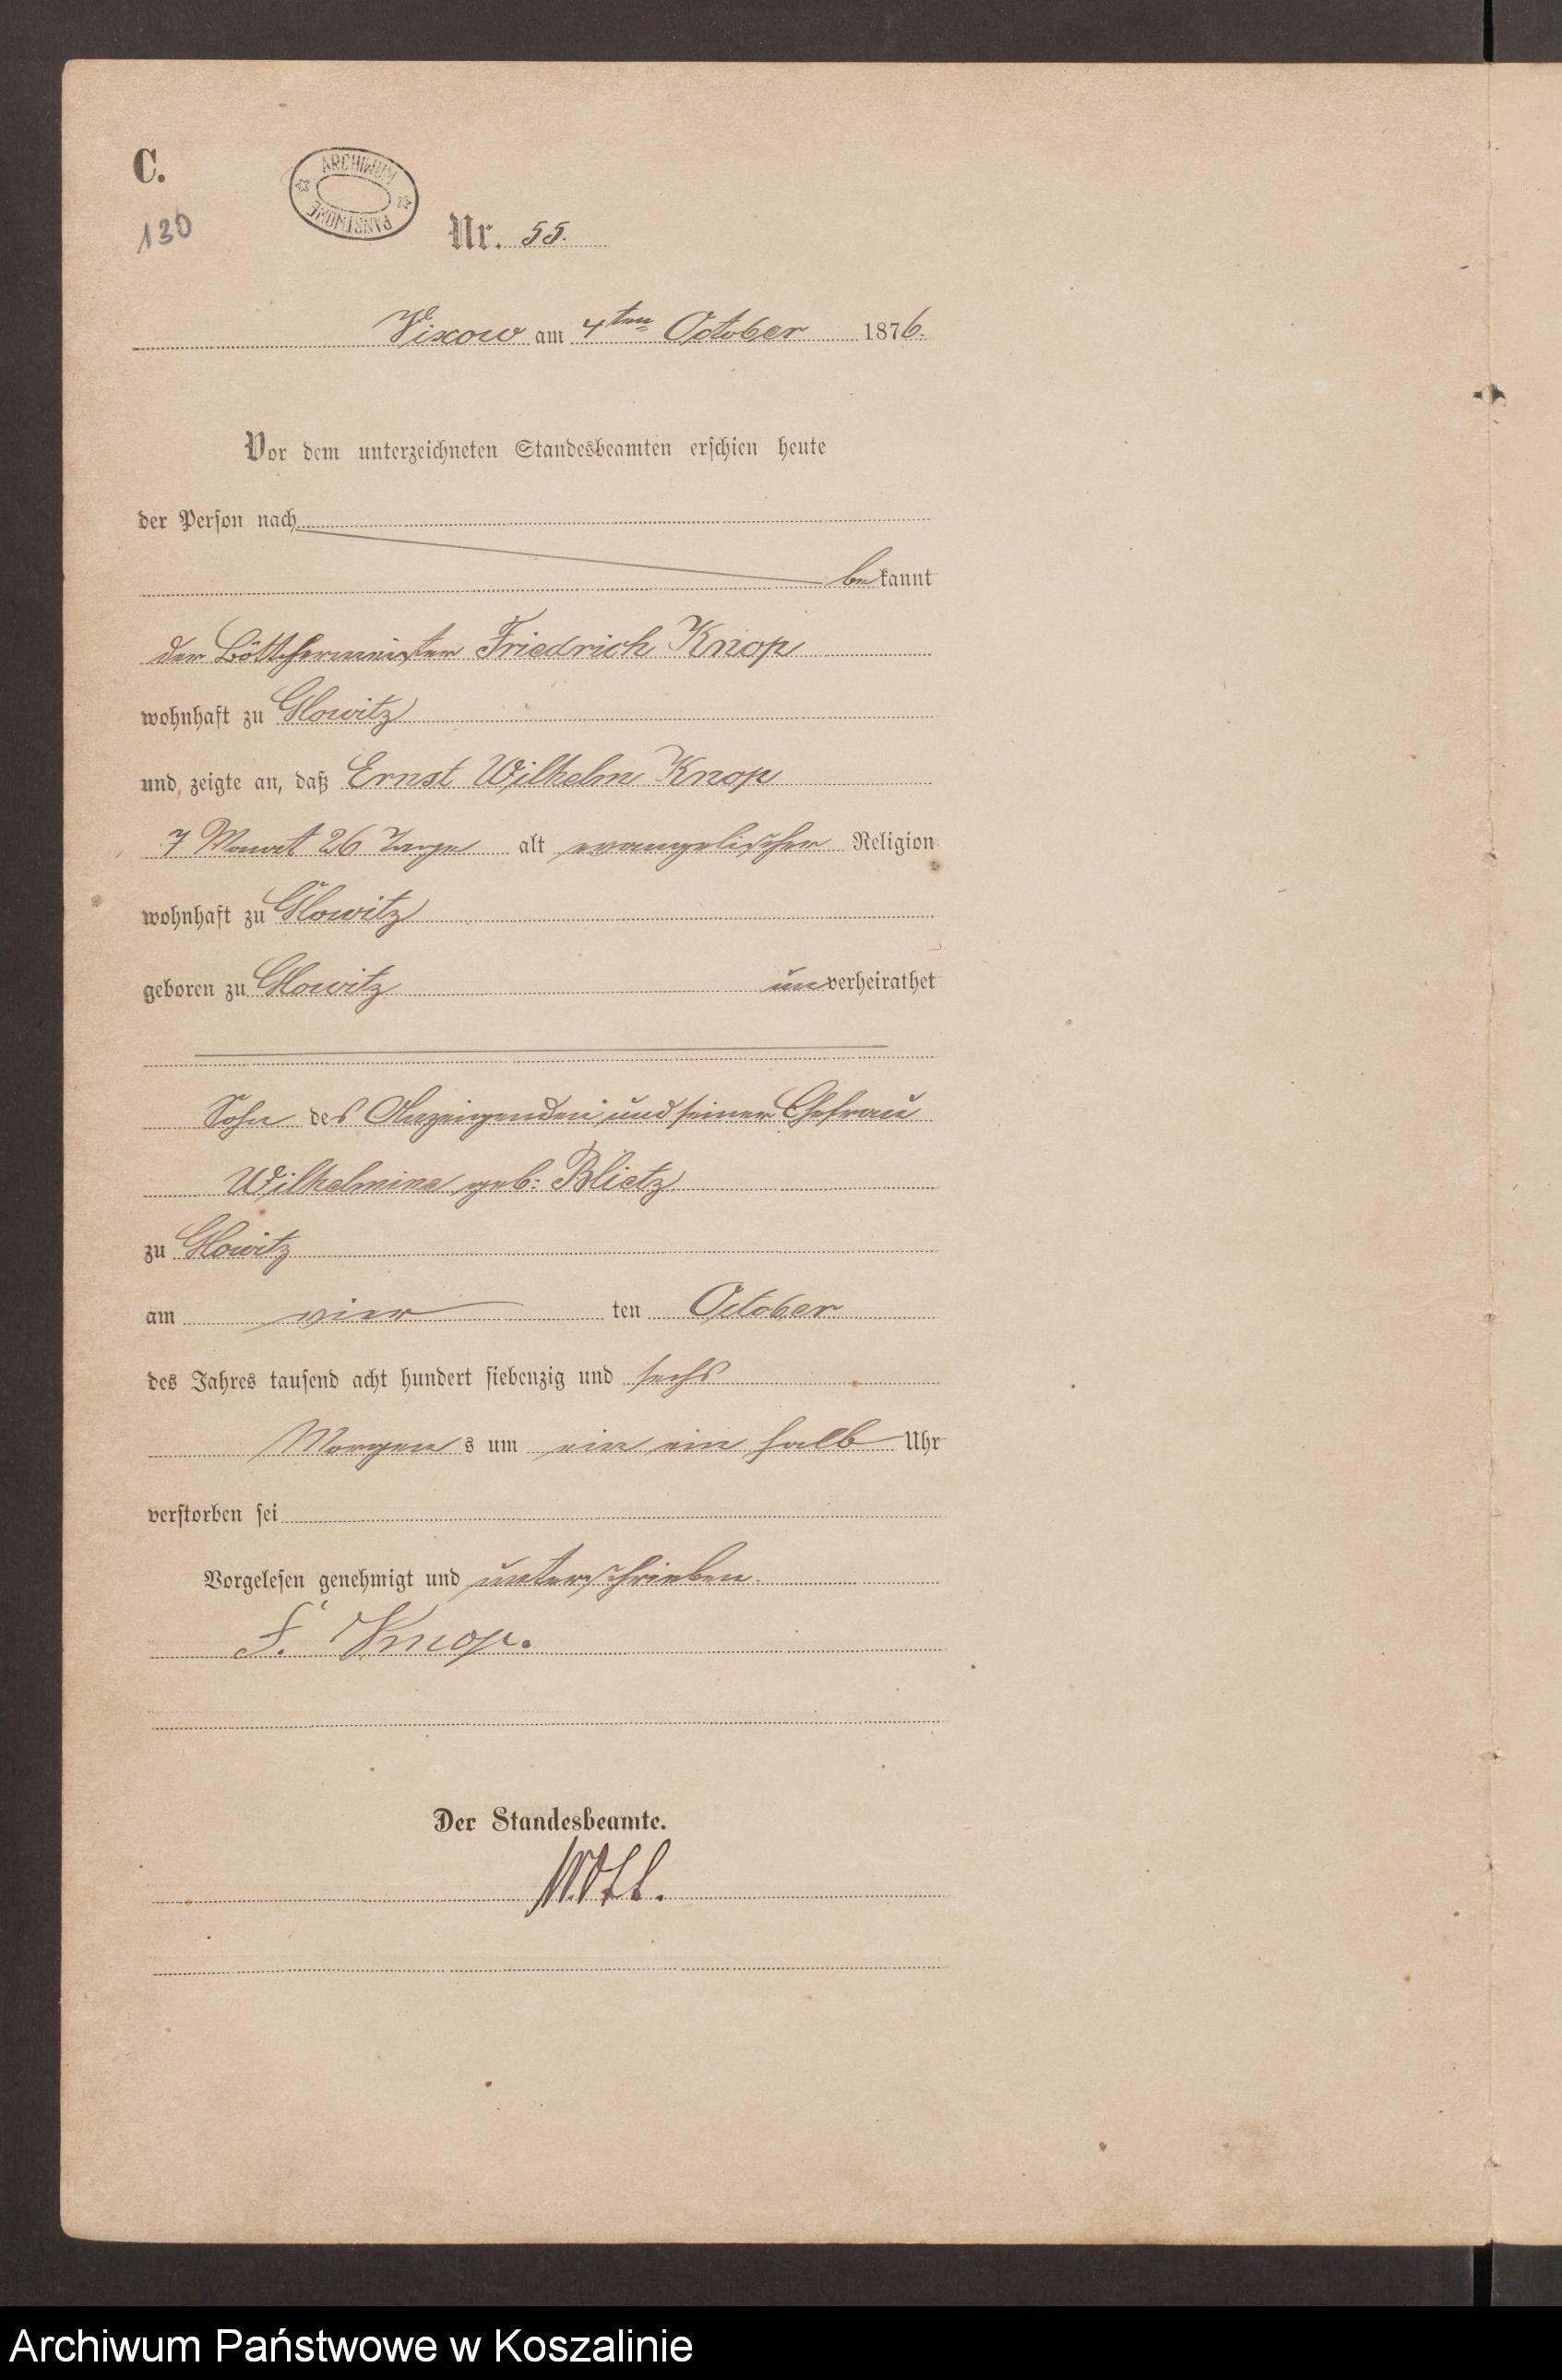 C.
ARCHIWUM PAŃSTWOWE
130
Nr. 55.
Vixow am 4ten October 1876.
Vor dem unterzeichneten Standesbeamten erschien heute
der Person nach
bekannt
der Böttchermeister Friedrich Knop
wohnhaft zu Glowitz
und zeigte an, daß Ernst Wilhelm Knop
7 Monat 26 Tage alt evangelischer Religion
wohnhaft zu Glowitz
geboren zu Glowitz unverheirathet
Sohn des Anzeigenden und seiner Ehefrau
Wilhelmine geb: Blietz
zu Glowitz
am vier ten October
des Jahres tausend acht hundert siebenzig und sechs
Morgens um ein ein halb Uhr
verstorben sei
Vorgelesen genehmigt und unterschrieben.
F. Knop.
Der Standesbeamte.
Archiwum Państwowe w Koszalinie